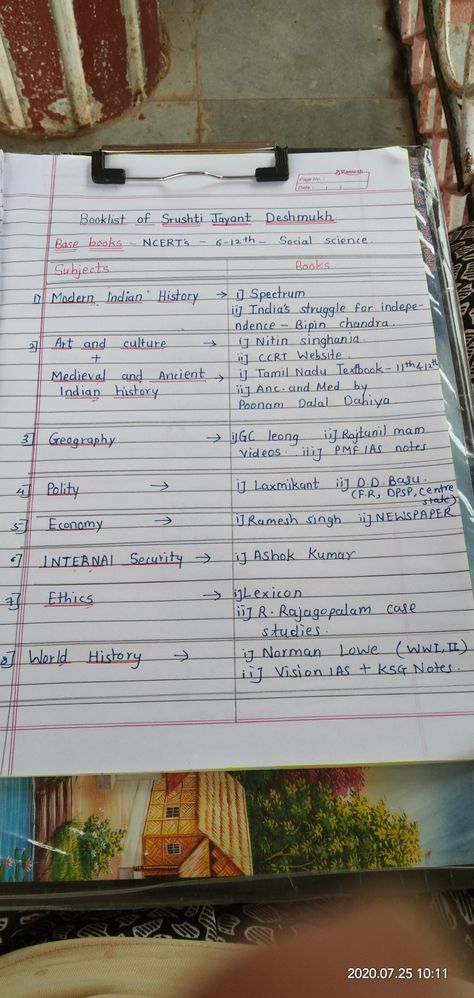 Ramesh
Page No.:
Date: / /
Booklist of Srushti Jayant Deshmukh
Base books - NCERT's - 6-12th - Social science.
Subjects Books
1] Modern Indian History → i] Spectrum
ii] India's struggle for indepe-
ndence - Bipin chandra.
2] Art and culture → i] Nitin singhania.
+ ii] CCRT Website.
Medieval and Ancient → i] Tamil Nadu Textbook - 11th & 12th
Indian history ii] Anc. and Med by
Poonam Dalal Dahiya
3] Geography → i] GC leong ii] Rajtanil mam
videos. iii] PMF IAS notes
4] Polity → i] Laxmikant ii] D.D. Basu.
(F.R, DPSP, Centre
state)
5] Economy → i] Ramesh singh ii] NEWSPAPER
6] INTERNAl Security → i] Ashok Kumar
7] Ethics → i] Lexicon
ii] R. Rajagopalam case
studies.
8] World History → i] Norman Lowe (WWI, II)
ii] Vision IAS + KSG Notes.
2020.07.25 10:11